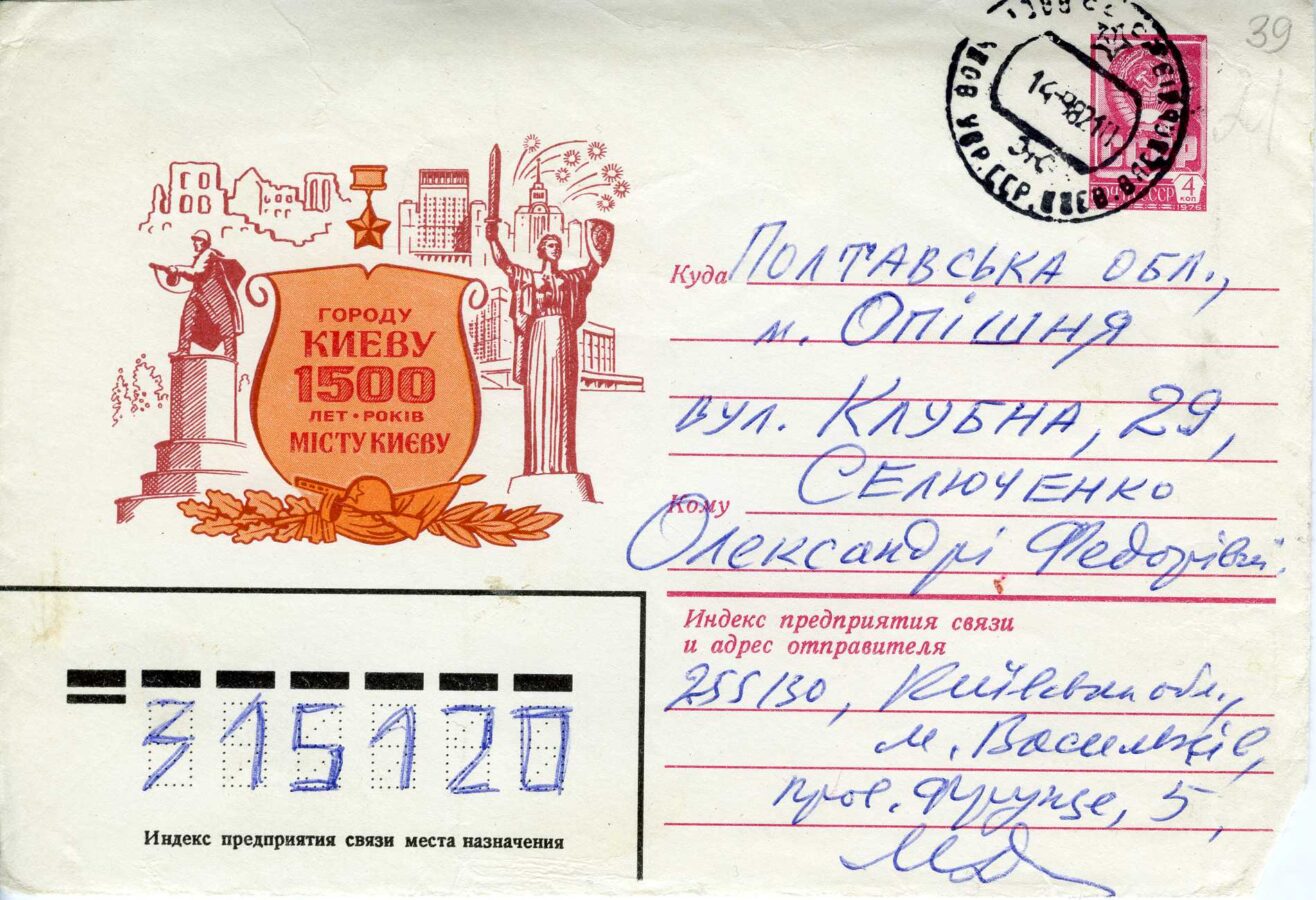 39
4
КОП
1976
ГОРОДУ
КИЕВУ
1500
ЛЕТ • РОКІВ
МІСТУ КИЄВУ
Куда Полтавська обл.,
м. Опішня
вул. Клубна, 29,
Селюченко
Кому
Олександрі Федорівні.
Индекс предприятия связи
и адрес отправителя
255130, Київська обл.,
м. Васильків,
пров. Фрунзе, 5,
315120
Индекс предприятия связи места назначения